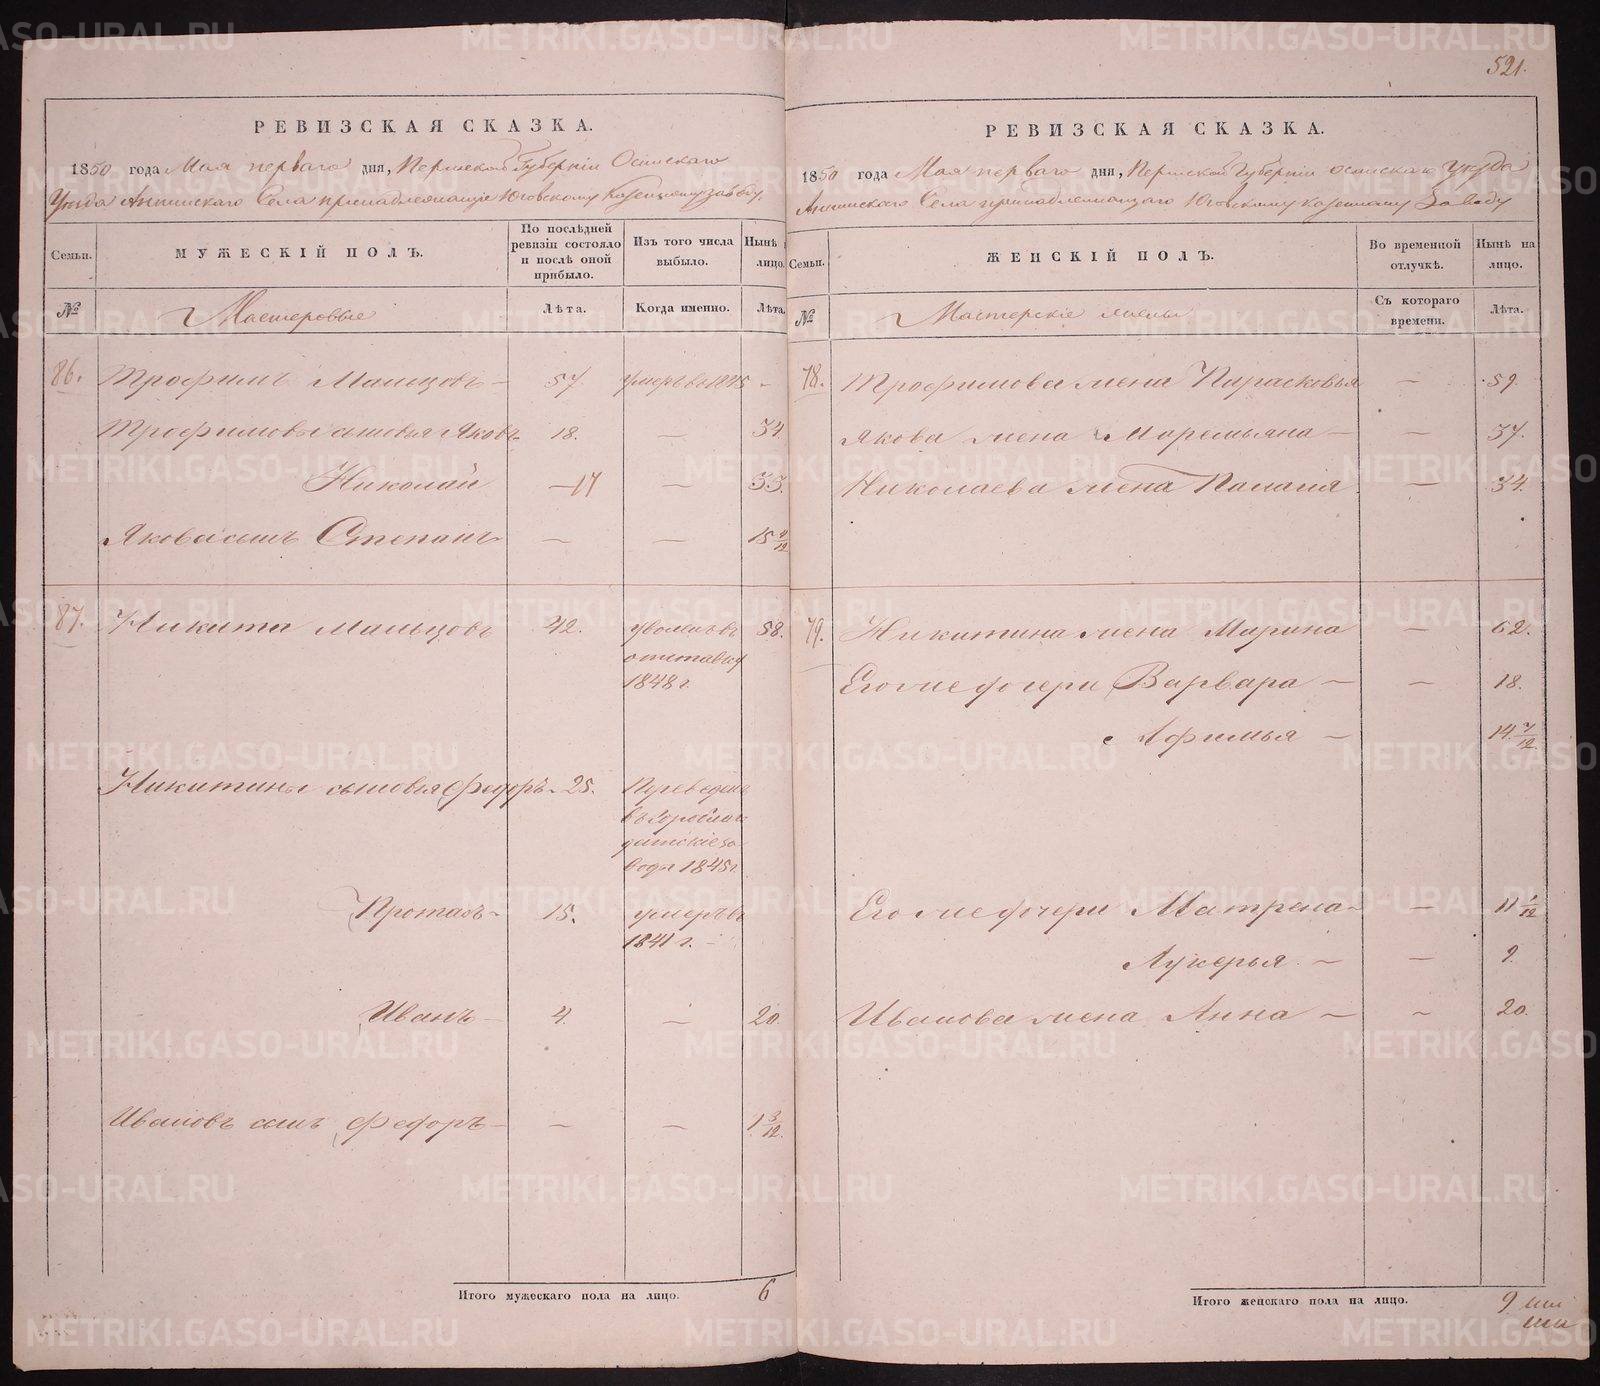 521.
РЕВИЗСКАЯ СКАЗКА.
1850 года Мая перваго дня, Пермской Губернiи Осинскаго
Уезда Аннинскаго Села принадлежащiе Юговскому Казенному заводу.
Семьи.
МУЖЕСКIЙ ПОЛЪ.
По послѣдней ревизiи состояло и послѣ оной прибыло.
Изъ того числа выбыло.
Нынѣ на лицо.
№
Мастеровые
Лѣта.
Когда именно.
Лѣта.
86. Трофимъ Мальцовъ — 57 умеръ въ 1845 —
Трофимовы сыновья Яковъ 18. — 34.
Николай — 17 — 33.
Якова сынъ Степанъ — — 15 4/12
87. Никита Мальцовъ 42. уволенъ въ отставку 1848 г. 58.
Никитины сыновья Федоръ 25. Переведенъ въ Гороблагодатскiе заводы 1845 г.
Протасъ 15. умеръ въ 1841 г. —
Иванъ 4. — 20.
Ивановъ сынъ Федоръ — — 1 3/12.
Итого мужескаго пола на лицо. 6
РЕВИЗСКАЯ СКАЗКА.
1850 года Мая перваго дня, Пермской Губернiи Осинскаго Уезда
Аннинскаго Села принадлежащаго Юговскому казенному Заводу
Семьи.
ЖЕНСКIЙ ПОЛЪ.
Во временной отлучкѣ.
Нынѣ на лицо.
№
Мастерскiе жены
Съ котораго времени.
Лѣта.
78. Трофимова жена Парасковья — 59.
Якова жена Маремьяна — 37.
Николаева жена Палагiя — 34.
79. Никитина жена Марина — 62.
Его же дочери Варвара — 18.
Афимья — 14 7/12
Его же дочери Матрена — 11 1/12
Лукерья — 9.
Иванова жена Анна — 20.
Итого женскаго пола на лицо. 9
METRIKI.GASO-URAL.RU